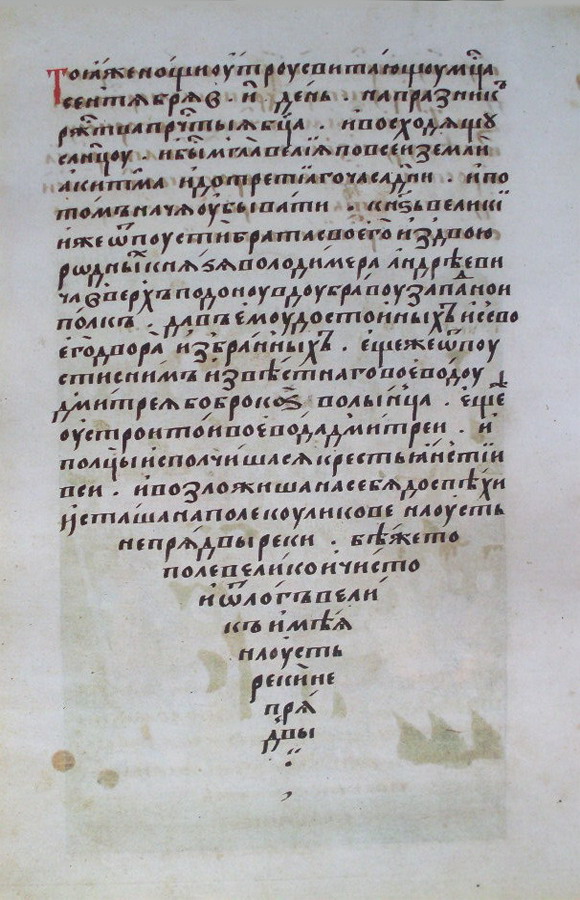 Тоꙗженощиоутроусвитающоумцⷭ҇а
сентѧбрѧв҃ . и҃ . день . напразникъ
ржⷭ҇твапрчⷭ҇тыѧбц҃а . ивосходѧщꙋ
слн҃цоу . ибысⷮмьглавелїѧповсеиземли
акитма идотретїагочасадн҃и . ипо
томъначѧоубывати . кнѕ҃ьвеликїи
ижеѿпоустибратасвоегоиздвою
рѡдныⷯкнѧѕѧволодимера андрѣеви
чѧвверхъподоноувдоубравоузападнои
полкъ . давъемоудостоиныхъисево
егодвора избранныхъ . ещежеѿпоу
стиснимъ извѣстнаговоеводоу
дмитреѧброкоѕ волынца . ещеⷤ
оустроитоивоеводадмитреи . и
полцыисполчишасѧкрестьꙗнстїи
вси . ивозложишанасебѧдоспѣхи
исташанаполекоуликове наоусть
непрѧдвыреки . бѣжето
полевеликоичисто
иѿлогъвели
къ имѣꙗ
наоусть
рекине
прѧ
двы